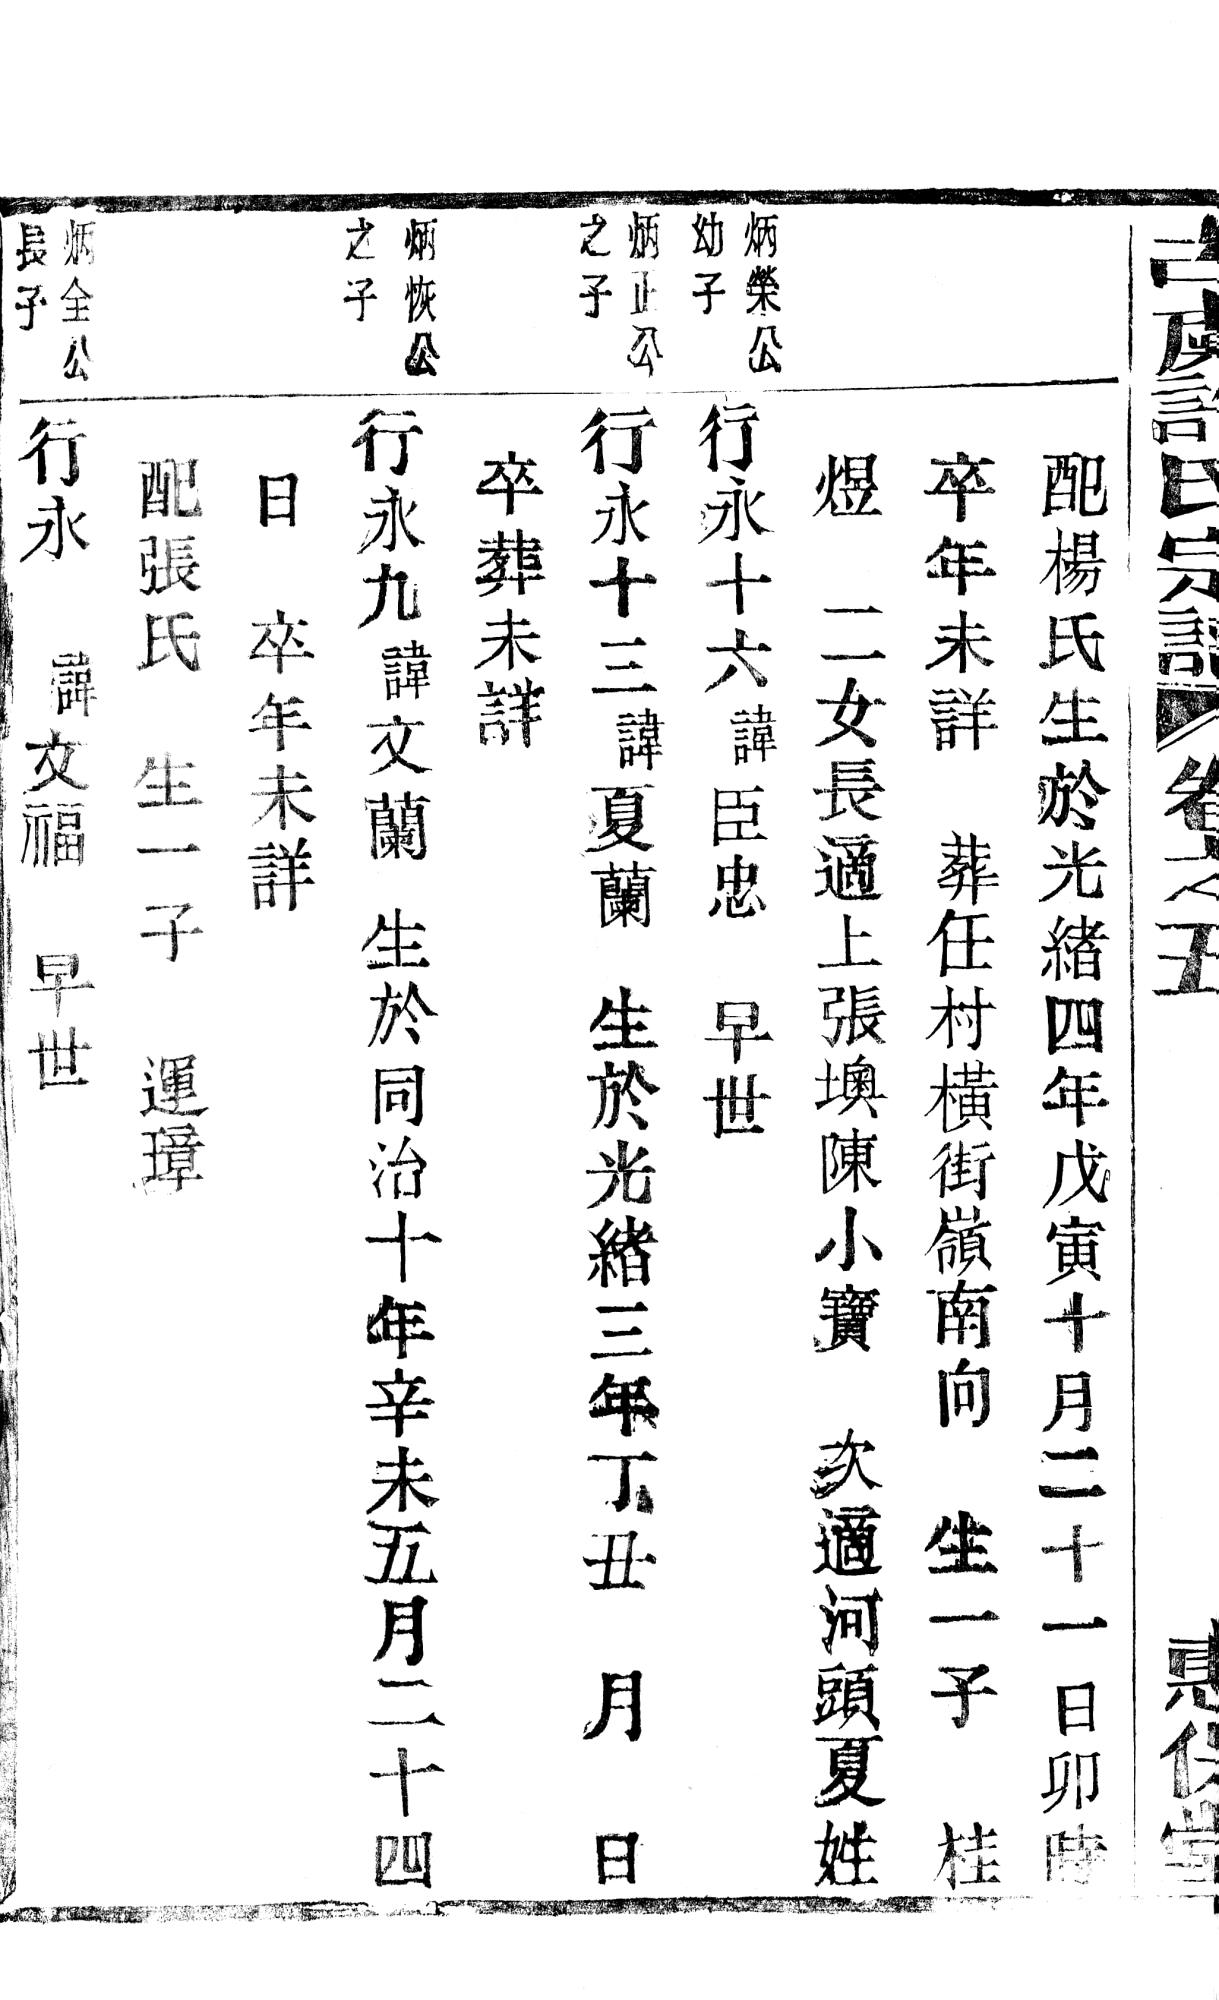 古虞許氏宗譜 卷之五 惠保堂
配楊氏生於光緒四年戊寅十月二十一日卯時
卒年未詳 葬任村橫街嶺南向 生一子 桂
煜 二女長適上張墺陳小寶 次適河頭夏姓
炳榮公
幼子
行永十六諱臣忠 早世
炳正公
之子
行永十三諱夏蘭 生於光緒三年丁丑 月 日
卒葬未詳
炳恢公
之子
行永九諱文蘭 生於同治十年辛未五月二十四
日 卒年未詳
配張氏 生一子 運璋
炳全公
長子
行永 諱文福 早世